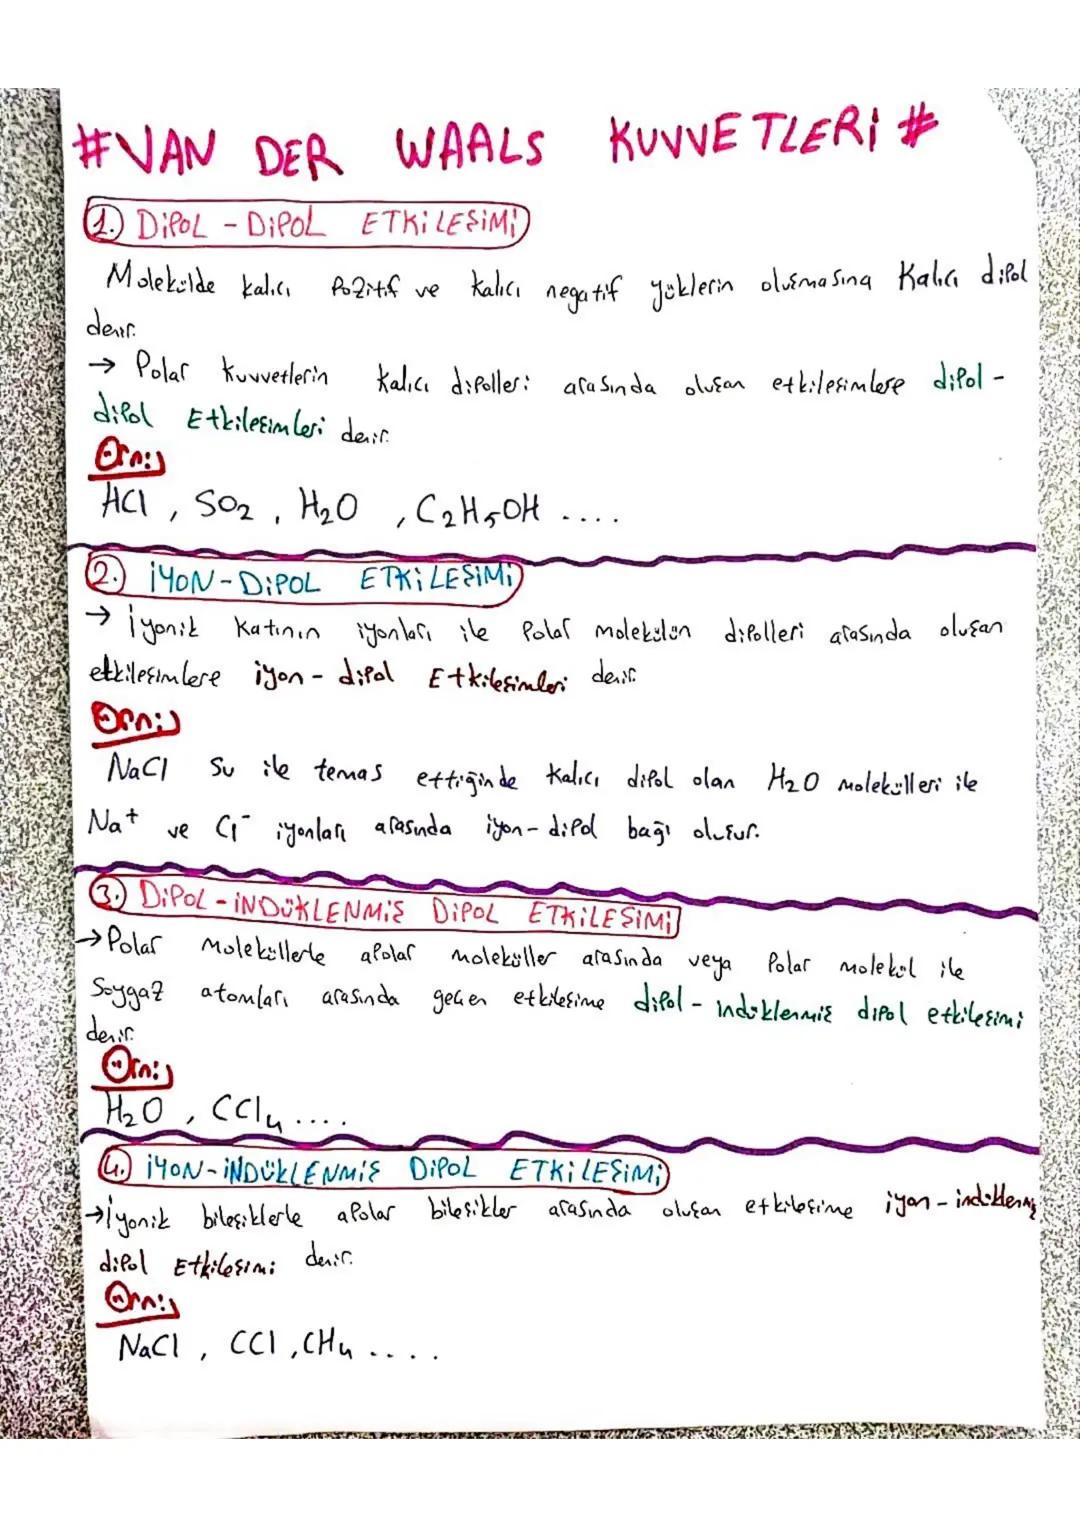 #VAN DER WAALS KUVVETLERİ #
1. DİPOL - DİPOL ETKİLEŞİMİ
Molekülde kalıcı pozitif ve kalıcı negatif yüklerin oluşmasına Kalıcı dipol
denir.
→ Polar kuvvetlerin kalıcı dipolleri arasında oluşan etkileşimlere dipol -
dipol Etkileşimleri denir.
Örn:
HCl , SO2 , H2O , C2H5OH ....
2. İYON-DİPOL ETKİLEŞİMİ
→ İyonik Katının iyonları ile Polar molekülün dipolleri arasında oluşan
etkileşimlere iyon - dipol Etkileşimleri denir.
Örn:
NaCl Su ile temas ettiğinde Kalıcı dipol olan H2O molekülleri ile
Na+ ve Cl- iyonları arasında iyon-dipol bağı oluşur.
3. DİPOL-İNDÜKLENMİŞ DİPOL ETKİLEŞİMİ
→Polar Moleküllerle apolar moleküller arasında veya Polar molekül ile
Soygaz atomları arasında geçen etkileşime dipol - indüklenmiş dipol etkileşimi
denir.
Örn:
H2O , CCl4 ....
4. İYON-İNDÜKLENMİŞ DİPOL ETKİLEŞİMİ
→İyonik bileşiklerle apolar bileşikler arasında oluşan etkileşime iyon-indüklenmiş
dipol Etkileşimi denir.
Örn:
NaCl , CCl , CH4 ....